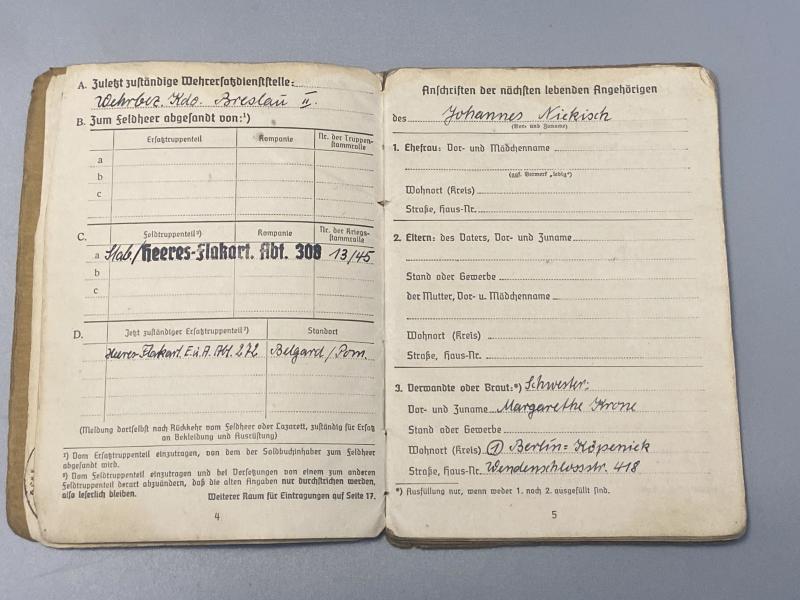 A. Zuletzt zuständige Wehrersatzdienststelle:
Wehrbez. Kdo. Breslau II.
B. Zum Feldheer abgesandt von:¹)
Ersatztruppenteil Kompanie Nr. der Truppen-
stammrolle
a
b
c
C. Feldtruppenteil²) Kompanie Nr. der Kriegs-
stammrolle
a Stab/Heeres-Flakart. Abt. 308 13/45
b
c
D. Jetzt zuständiger Ersatztruppenteil²) Standort
Heeres-Flakart. E.u.A. Abt. 272 Belgard/Pom.
(Meldung dortselbst nach Rückkehr vom Feldheer oder Lazarett, zuständig für Ersatz
an Bekleidung und Ausrüstung)
¹) Vom Ersatztruppenteil einzutragen, von dem der Soldbuchinhaber zum Feldheer
abgesandt wird.
²) Vom Feldtruppenteil einzutragen und bei Versetzungen von einem zum anderen
Feldtruppenteil derart abzuändern, daß die alten Angaben nur durchstrichen werden,
also leserlich bleiben.
Weiterer Raum für Eintragungen auf Seite 17.
4
Anschriften der nächsten lebenden Angehörigen
des Johannes Nickisch
(Vor- und Zuname)
1. Ehefrau: Vor- und Mädchenname
(ggf. Vermerk „ledig")
Wohnort (Kreis)
Straße, Haus-Nr.
2. Eltern: des Vaters, Vor- und Zuname
Stand oder Gewerbe
der Mutter, Vor- u. Mädchenname
Wohnort (Kreis)
Straße, Haus-Nr.
3. Verwandte oder Braut:*) Schwester:
Vor- und Zuname Margarethe Krone
Stand oder Gewerbe
Wohnort (Kreis) (1) Berlin=Köpenick
Straße, Haus-Nr. Wendenschlossstr. 418
*) Ausfüllung nur, wenn weder 1. noch 2. ausgefüllt sind.
5